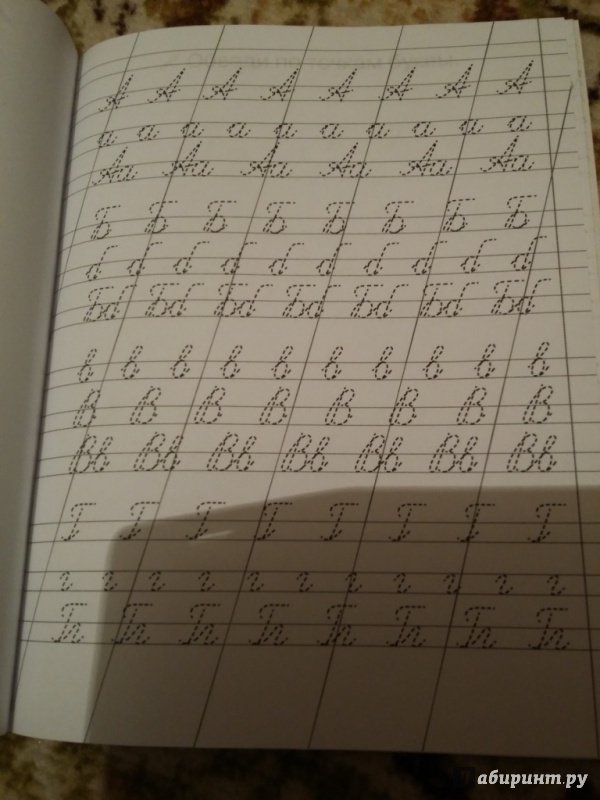 А А А А А А А А
а а а а а а а а а а
Аа Аа Аа Аа Аа Аа
Б Б Б Б Б Б Б Б
б б б б б б б б б б
Бб Бб Бб Бб Бб Бб Бб
в в в в в в в в в в
В В В В В В В В
Вв Вв Вв Вв Вв Вв Вв
Г Г Г Г Г Г Г Г
г г г г г г г г г г г
Гг Гг Гг Гг Гг Гг Гг Гг
Лабиринт.ру